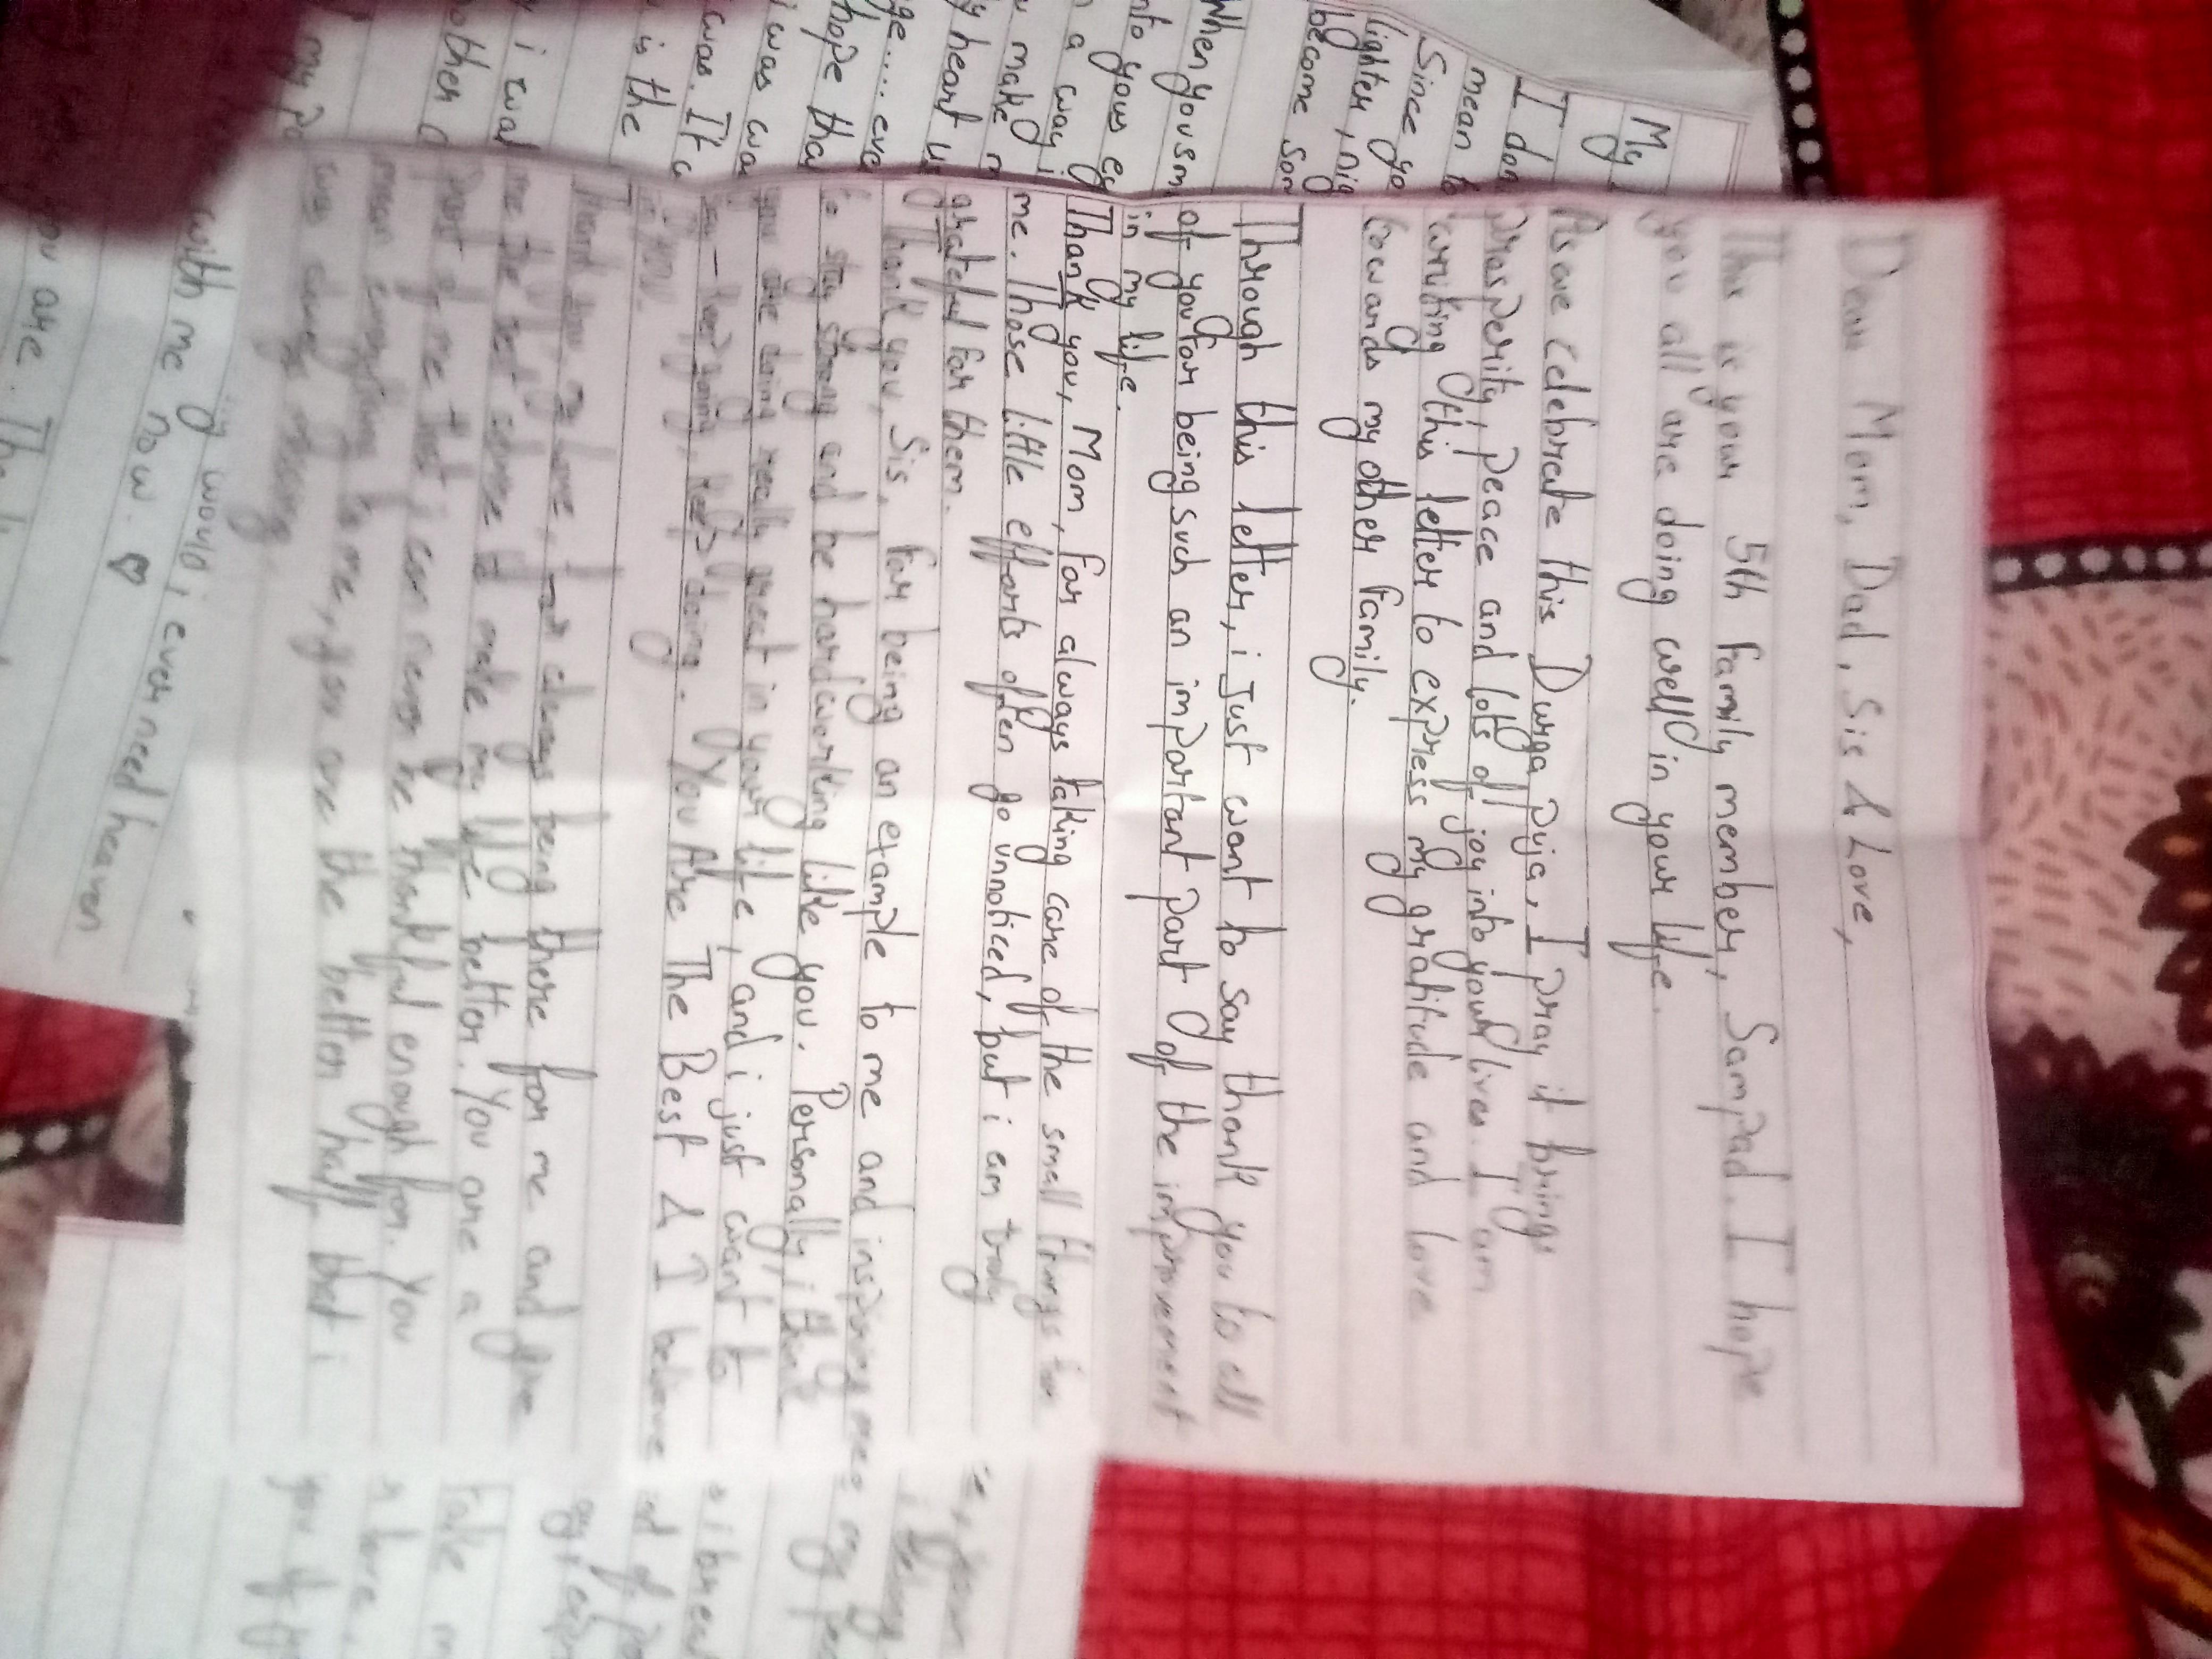 Dear Mom, Dad, Sis & Love,
This is your 5th family member, Sampad. I hope
you all are doing well in your life.
As we celebrate this Durga puja, I pray it brings
prosperity, peace and lots of joy into your lives. I am
writing this letter to express my gratitude and love
towards my other family.
Through this letter, i Just want to say thank you to all
of you for being such an important part of the improvement
in my life.
Thank you, Mom, for always taking care of the small things for
me. Those little efforts often go unnoticed, but i am truly
grateful for them.
Thank you, Sis, for being an example to me and inspiring me
to stay strong and be hardworking like you. Personally, i think
you are doing really great in your life, and i just want to
say - keep going, keep doing. You Are The Best & I believe
in you.
Thank you, love, for always being there for me and give
me the best advice to make my life better. You are a
part of me that i can never be thankful enough for. You
mean everything to me, you are the better half that i
was always missing.
My
I don
mean to
Since yo
lighter, nig
become son
When you sm
into your ey
a way i
u make m
y heart
ge.... eve
hope tha
i was wa
was. It c
is the
i wal
nother
my pa
with me now. ♡
would i ever need heaven
you are. The